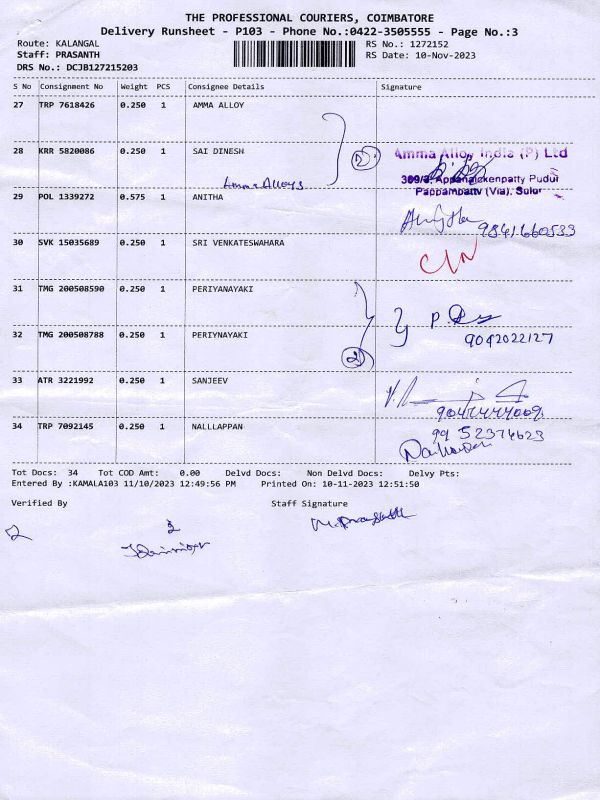 THE PROFESSIONAL COURIERS, COIMBATORE
Delivery Runsheet - P103 - Phone No.:0422-3505555 - Page No.:3
Route: KALANGAL
Staff: PRASANTH
DRS No.: DCJB127215203
RS No.: 1272152
RS Date: 10-Nov-2023
S No Consignment No Weight PCS Consignee Details Signature
27 TRP 7618426 0.250 1 AMMA ALLOY
28 KRR 5820086 0.250 1 SAI DINESH
Amma Alloys
Amma Alloy India (P) Ltd
309/3, Appanaickenpatty Pudur
Pappampatty (Via), Sulur
29 POL 1339272 0.575 1 ANITHA
9841660533
30 SVK 15035689 0.250 1 SRI VENKATESWAHARA
31 TMG 200508590 0.250 1 PERIYANAYAKI
32 TMG 200508788 0.250 1 PERIYNAYAKI
2
9042022127
33 ATR 3221992 0.250 1 SANJEEV
9047444009
34 TRP 7092145 0.250 1 NALLLAPPAN
9952374623
Tot Docs: 34 Tot COD Amt: 0.00 Delvd Docs: Non Delvd Docs: Delvy Pts:
Entered By :KAMALA103 11/10/2023 12:49:56 PM Printed On: 10-11-2023 12:51:50
Verified By Staff Signature
M. Prasanth